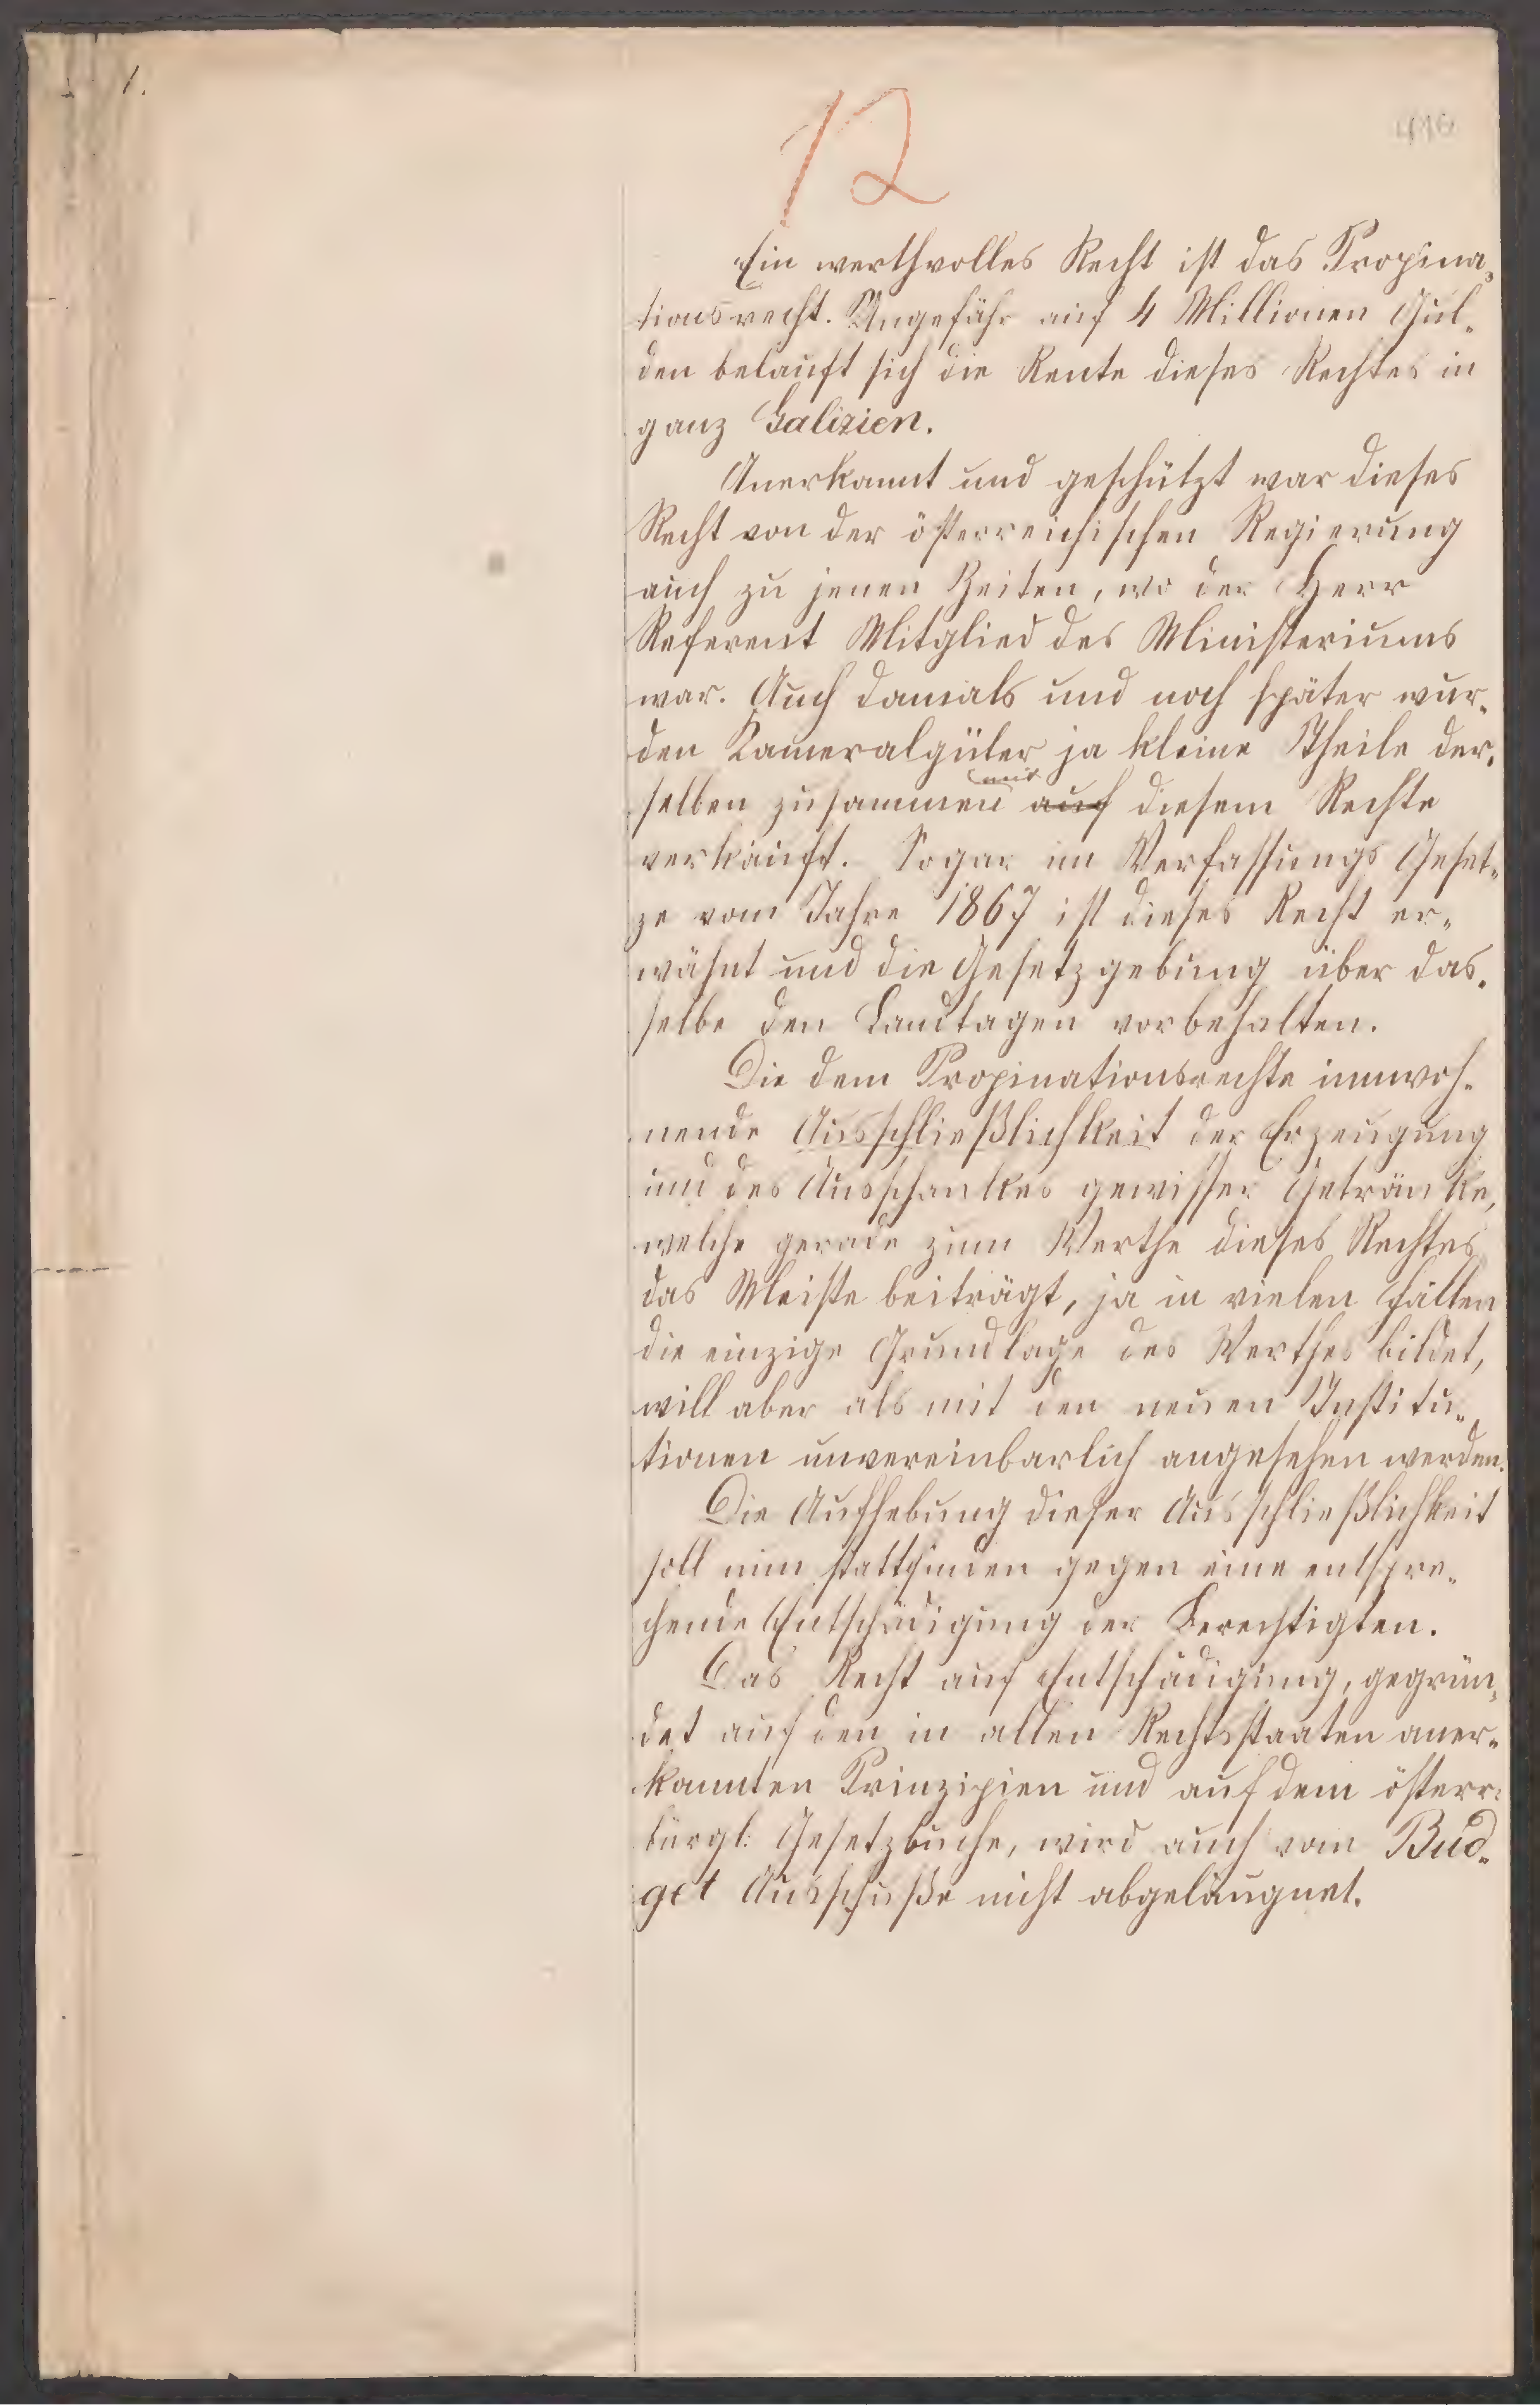 1.
12
416
Ein werthvolles Recht ist das Propina„
tionsrecht. Ungefähr auf 4 Millionen Gul„
den belauft sich die Rente dieses Rechtes in
ganz Galizien.
Anerkannt und geschützt war dieses
Recht von der österreichischen Regierung
auch zu jenen Zeiten, wo der Herr
Referent Mitglied des Ministeriums
war. Auch damals und noch später wur„
den Kameralgüter ja kleine Theile der„
mit
selben zusammen auf diesem Rechte
verkauft. Sogar im Verfassungs Geset„
ze vom Jahre 1867 ist dieses Recht er„
wähnt und die Gesetzgebung über das„
selbe den Landtagen vorbehalten.
Die dem Propinationsrechte innwoh„
nende Ausschließlichkeit der Erzeugung
und des Ausschankes gewisser Getränke,
welche gerade zum Werthe dieses Rechtes
das Meiste beiträgt, ja in vielen Fällen
die einzige Grundlage des Werthes bildet,
will aber als mit den neuen Institu„
tionen unvereinbarlich angesehen werden.
Die Aufhebung dieser Ausschließlichkeit
soll nun stattfinden gegen eine entspre„
chende Entschädigung der Berechtigten.
Das Recht auf Entschädigung, gegrün„
det auf den in allen Rechtsstaaten aner„
kannten Prinzipien und auf dem österr:
bürgl: Gesetzbuche, wird auch vom Bud„
get Ausschuße nicht abgeläugnet.